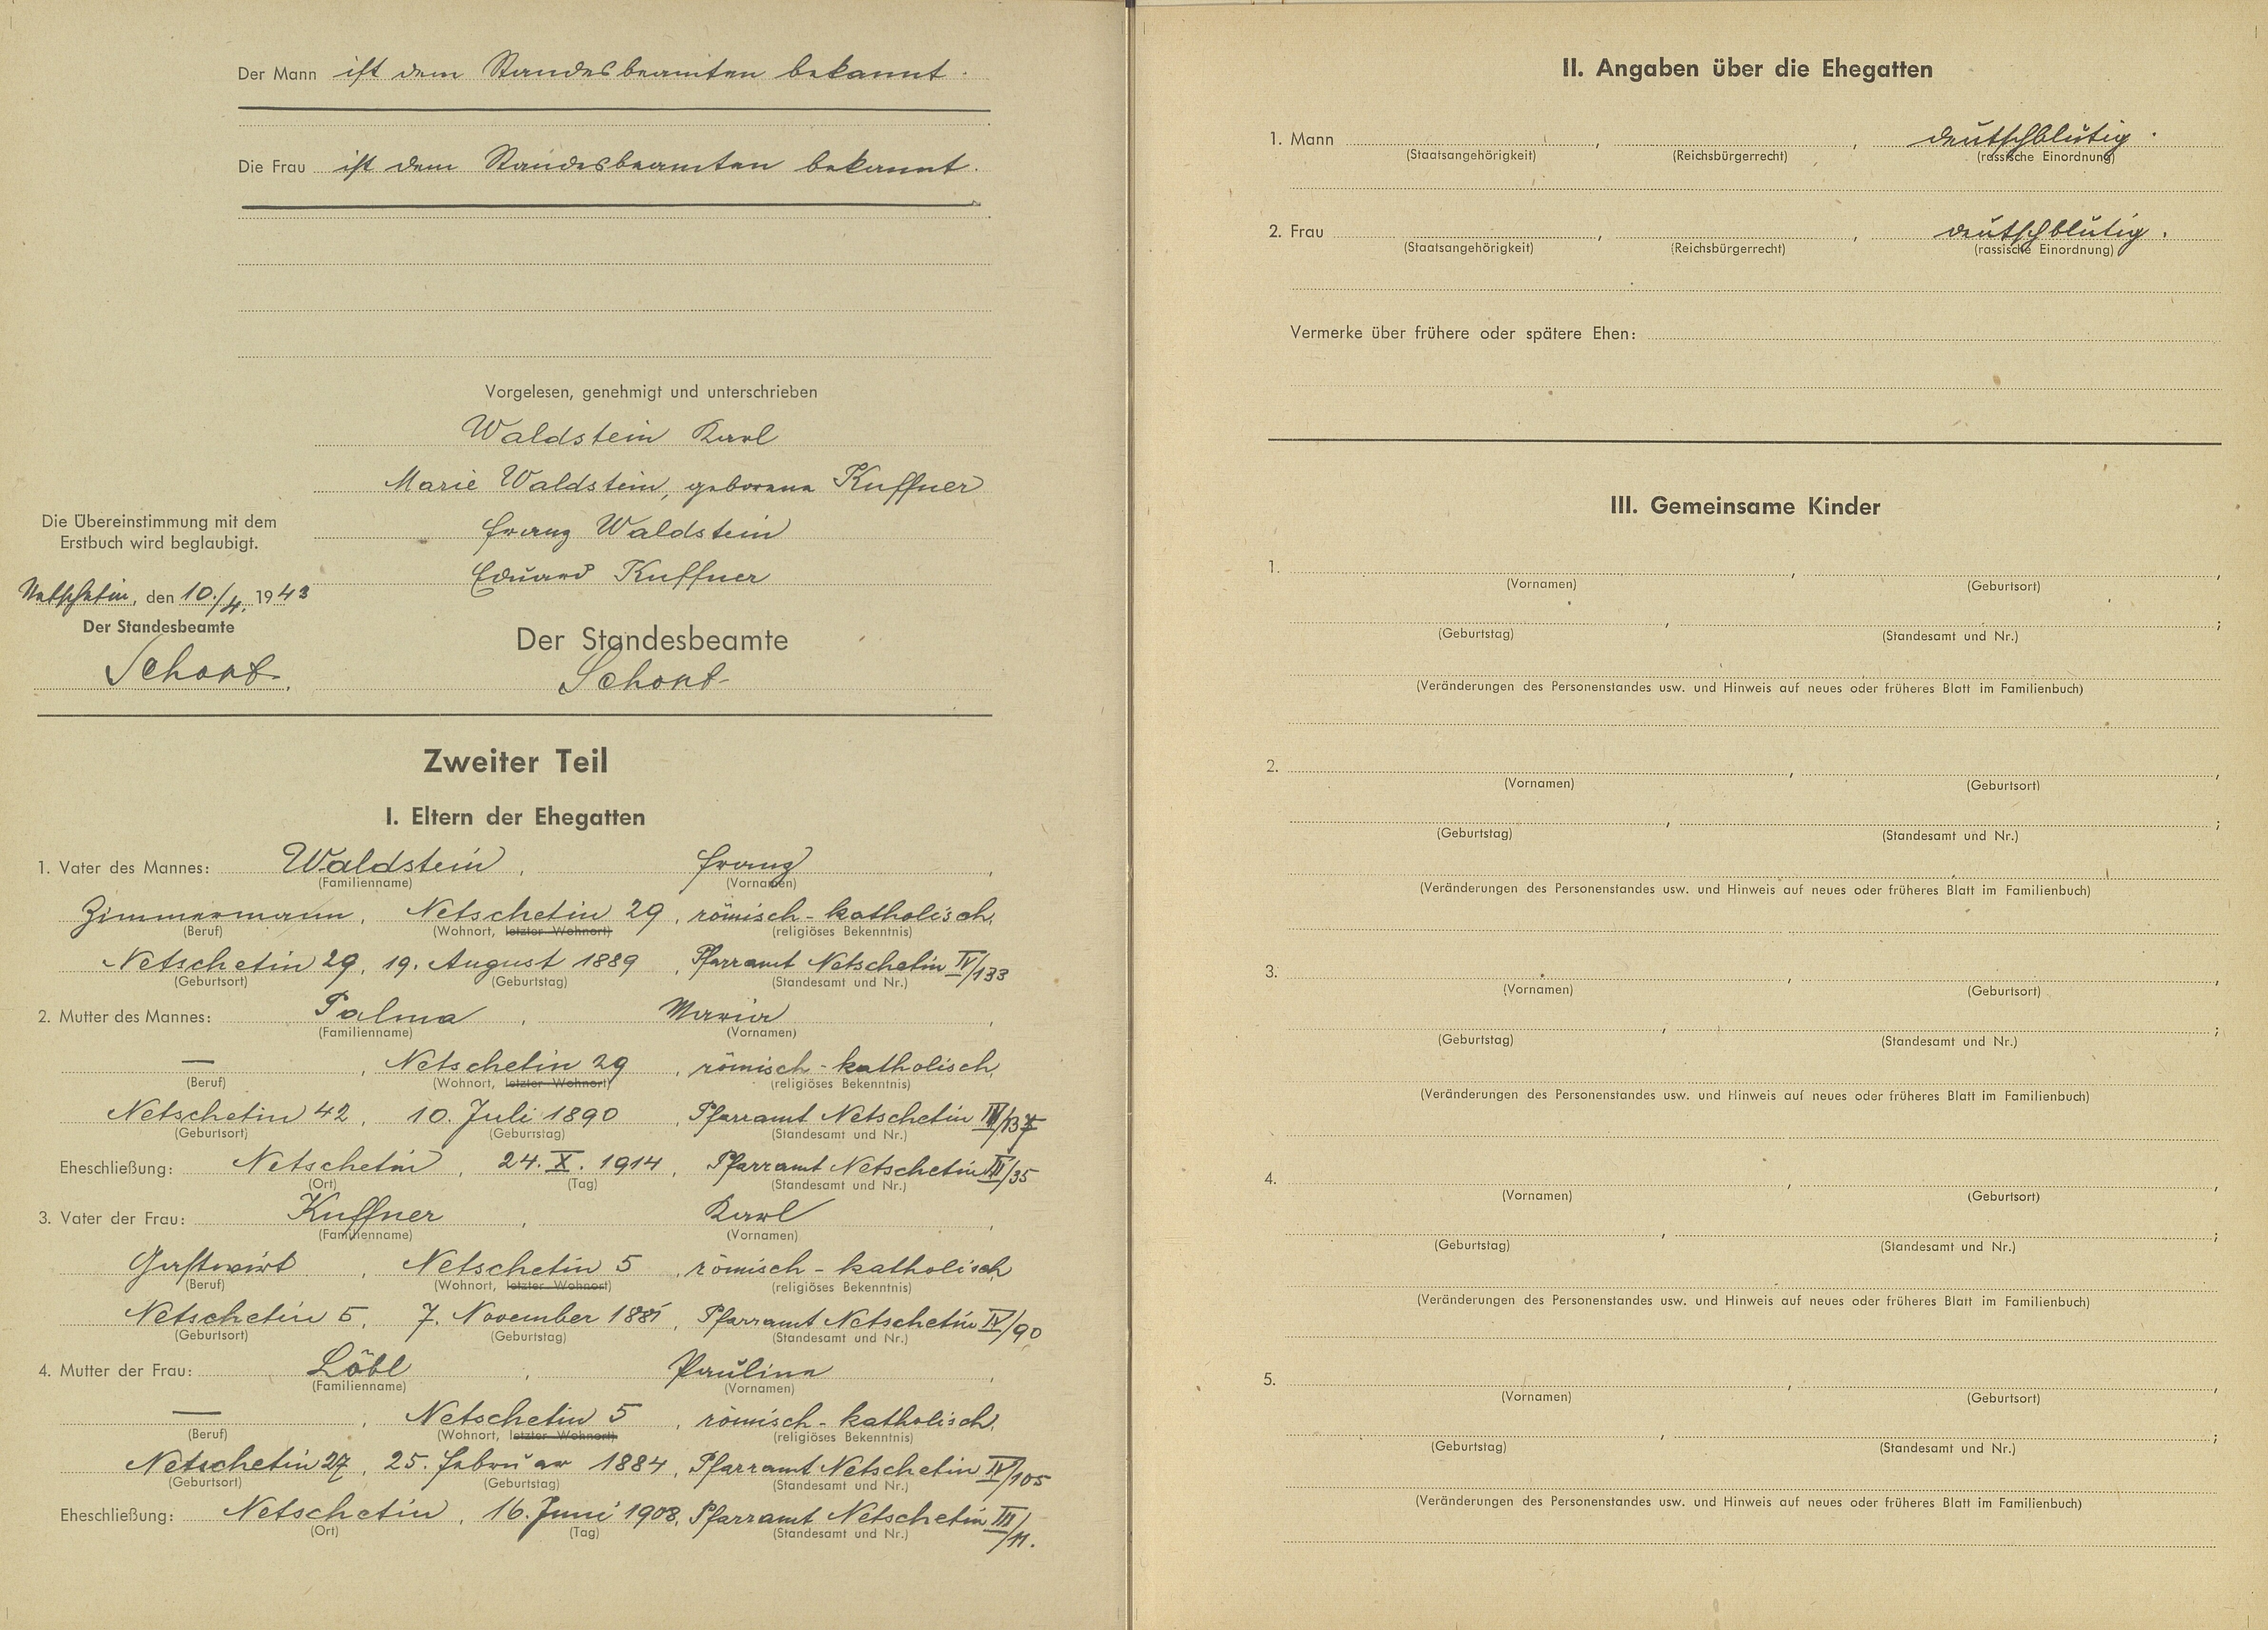 Der Mann ist dem Standesbeamten bekannt.
Die Frau ist dem Standesbeamten bekannt.
Vorgelesen, genehmigt und unterschrieben
Waldstein Karl
Marie Waldstein, geborene Kuffner
Franz Waldstein
Eduard Kuffner
Die Übereinstimmung mit dem
Erstbuch wird beglaubigt.
Netschetin, den 10./4. 1943
Der Standesbeamte
Der Standesbeamte
Zweiter Teil
I. Eltern der Ehegatten
1. Vater des Mannes: Waldstein, Franz,
(Familienname) (Vornamen)
Zimmermann, Netschetin 29, römisch-katholisch,
(Beruf) (Wohnort, letzter Wohnort) (religiöses Bekenntnis)
Netschetin 29, 19. August 1889, Pfarramt Netschetin IV/133
(Geburtsort) (Geburtstag) (Standesamt und Nr.)
2. Mutter des Mannes: Palma, Maria,
(Familienname) (Vornamen)
—, Netschetin 29, römisch-katholisch,
(Beruf) (Wohnort, letzter Wohnort) (religiöses Bekenntnis)
Netschetin 42, 10. Juli 1890, Pfarramt Netschetin
(Geburtsort) (Geburtstag) (Standesamt und Nr.)
Eheschließung: Netschetin, 24. X. 1914, Pfarramt Netschetin III/35
(Ort) (Tag) (Standesamt und Nr.)
3. Vater der Frau: Kuffner, Karl,
(Familienname) (Vornamen)
Gastwirt, Netschetin 5, römisch-katholisch
(Beruf) (Wohnort, letzter Wohnort) (religiöses Bekenntnis)
Netschetin 5, 7. November 1881, Pfarramt Netschetin IV/90
(Geburtsort) (Geburtstag) (Standesamt und Nr.)
4. Mutter der Frau: Löbl, Paulina,
(Familienname) (Vornamen)
—, Netschetin 5, römisch-katholisch,
(Beruf) (Wohnort, letzter Wohnort) (religiöses Bekenntnis)
Netschetin 27, 25. Februar 1884, Pfarramt Netschetin IV/105
(Geburtsort) (Geburtstag) (Standesamt und Nr.)
Eheschließung: Netschetin, 16. Juni 1908, Pfarramt Netschetin III/11.
(Ort) (Tag) (Standesamt und Nr.)
II. Angaben über die Ehegatten
1. Mann , , deutschblütig.
(Staatsangehörigkeit) (Reichsbürgerrecht) (rassische Einordnung)
2. Frau , , deutschblütig.
(Staatsangehörigkeit) (Reichsbürgerrecht) (rassische Einordnung)
Vermerke über frühere oder spätere Ehen:
III. Gemeinsame Kinder
1. , ,
(Vornamen) (Geburtsort)
, ;
(Geburtstag) (Standesamt und Nr.)
(Veränderungen des Personenstandes usw. und Hinweis auf neues oder früheres Blatt im Familienbuch)
2. , ,
(Vornamen) (Geburtsort)
, ;
(Geburtstag) (Standesamt und Nr.)
(Veränderungen des Personenstandes usw. und Hinweis auf neues oder früheres Blatt im Familienbuch)
3. , ,
(Vornamen) (Geburtsort)
, ;
(Geburtstag) (Standesamt und Nr.)
(Veränderungen des Personenstandes usw. und Hinweis auf neues oder früheres Blatt im Familienbuch)
4. , ,
(Vornamen) (Geburtsort)
, ;
(Geburtstag) (Standesamt und Nr.)
(Veränderungen des Personenstandes usw. und Hinweis auf neues oder früheres Blatt im Familienbuch)
5. , ,
(Vornamen) (Geburtsort)
, ;
(Geburtstag) (Standesamt und Nr.)
(Veränderungen des Personenstandes usw. und Hinweis auf neues oder früheres Blatt im Familienbuch)